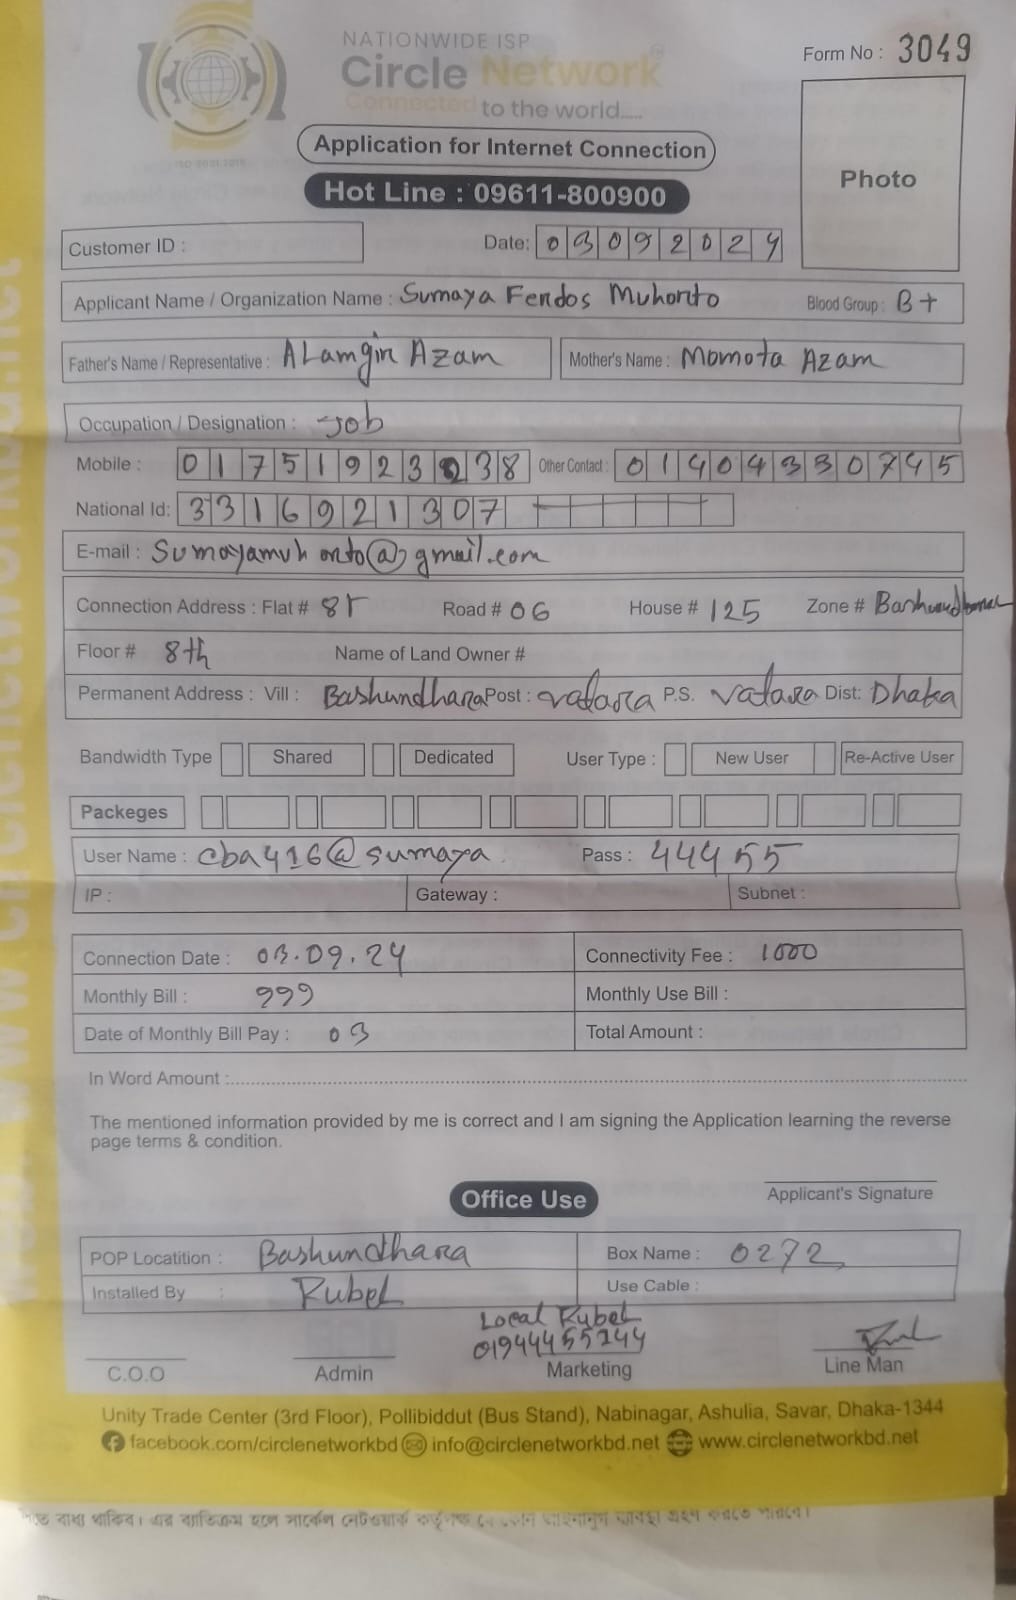 NATIONWIDE ISP
Circle Network
Connected to the world.....
ISO 9001:2015
Form No : 3049
Photo
Application for Internet Connection
Hot Line : 09611-800900
Customer ID :
Date: 03092024
Applicant Name / Organization Name : Sumaya Ferdos Muhonto Blood Group : B+
Father's Name / Representative : ALamgir Azam Mother's Name : Momota Azam
Occupation / Designation : Job
Mobile : 01751923238 Other Contact : 01404330745
National Id: 3316921307
E-mail : Sumayamuhonto@gmail.com
Connection Address : Flat # 8r Road # 06 House # 125 Zone # Bashundhara
Floor # 8th Name of Land Owner #
Permanent Address : Vill : Bashundhara Post : vatara P.S. vatara Dist: Dhaka
Bandwidth Type Shared Dedicated User Type : New User Re-Active User
Packeges
User Name : cba416@sumaya Pass : 44455
IP : Gateway : Subnet :
Connection Date : 03.09.24 Connectivity Fee : 1000
Monthly Bill : 999 Monthly Use Bill :
Date of Monthly Bill Pay : 03 Total Amount :
In Word Amount :
The mentioned information provided by me is correct and I am signing the Application learning the reverse
page terms & condition.
Office Use
Applicant's Signature
POP Locatition : Bashundhara Box Name : 0272
Installed By : Rubel Use Cable :
Local Rubel
01944455244
C.O.O Admin Marketing Line Man
Unity Trade Center (3rd Floor), Pollibiddut (Bus Stand), Nabinagar, Ashulia, Savar, Dhaka-1344
facebook.com/circlenetworkbd info@circlenetworkbd.net www.circlenetworkbd.net
বাধ্য থাকিব। এর ব্যতিক্রম হলে সার্কেল নেটওয়ার্ক কর্তৃপক্ষ যে কোন আইনানুগ ব্যবস্থা গ্রহণ করতে পারবে।